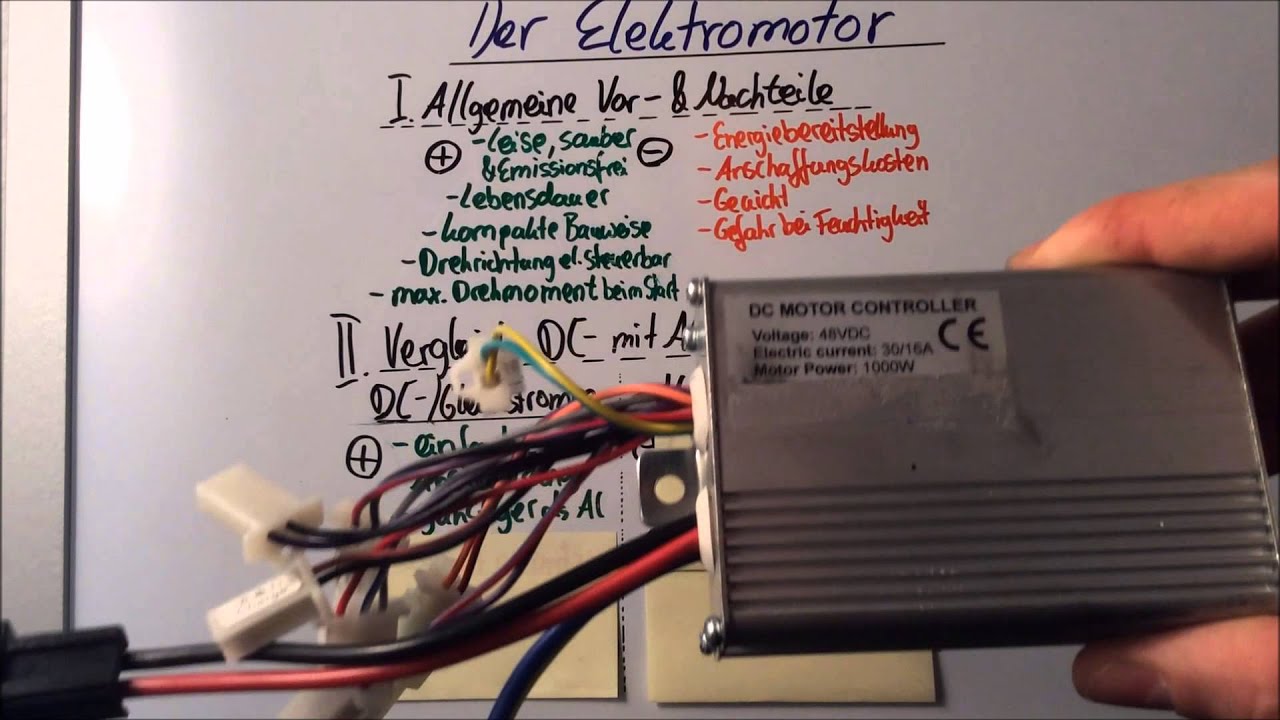 Der Elektromotor
I. Allgemeine Vor- & Nachteile
+ - leise, sauber
& Emissionsfrei
- Lebensdauer
- kompakte Bauweise
- Drehrichtung el. steuerbar
- max. Drehmoment beim Start
- - Energiebereitstellung
- Anschaffungskosten
- Gewicht
- Gefahr bei Feuchtigkeit
II. DC- mit
DC-
+ -
als AC
DC MOTOR CONTROLLER
Voltage: 48VDC
Electric current: 30/16A
Motor Power: 1000W
CE